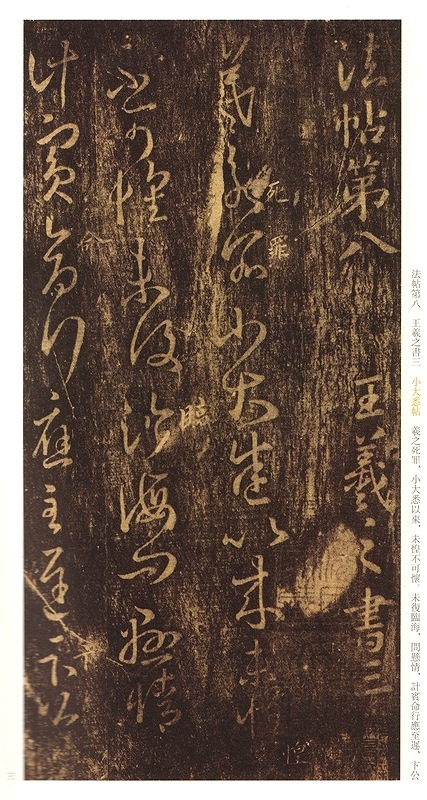 法帖第八 王羲之書三 小大悉帖 羲之死罪、小大悉以來、未惶不可懷、未復臨海、問懸情、計賓命行應至遲、卞公
法帖第八 王羲之書三
羲之死罪小大悉以來未惶
不可懷未復臨海問懸情
計賓命行應至遲卞公
死罪
臨
命
惶
三